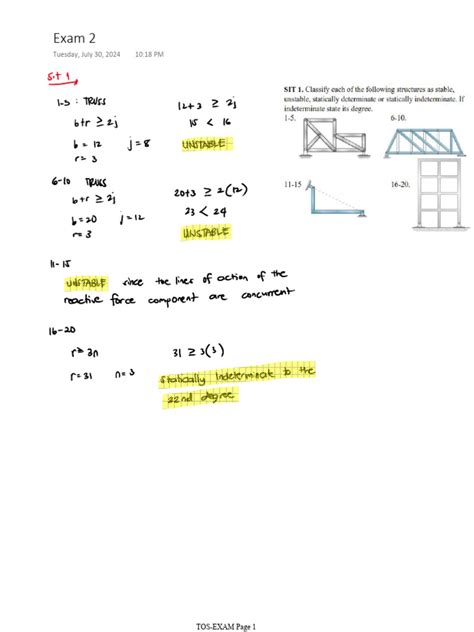 Exam 2
Tuesday, July 30, 2024 10:18 PM
Sit 1
SIT 1. Classify each of the following structures as stable,
unstable, statically determinate or statically indeterminate. If
indeterminate state its degree.
1-5. 6-10.
11-15 16-20.
1-5 : TRUSS
b+r ≥ 2j
b = 12 j = 8
r = 3
12+3 ≥ 2j
15 < 16
UNSTABLE
6-10 TRUSS
b+r ≥ 2j
b = 20 j = 12
r = 3
20+3 ≥ 2(12)
23 < 24
UNSTABLE
11-15
UNSTABLE since the lines of action of the
reactive force component are concurrent
16-20
r ≥ 3n
r = 31 n = 3
31 ≥ 3(3)
Statically Indeterminate to the
22nd degree
TOS-EXAM Page 1